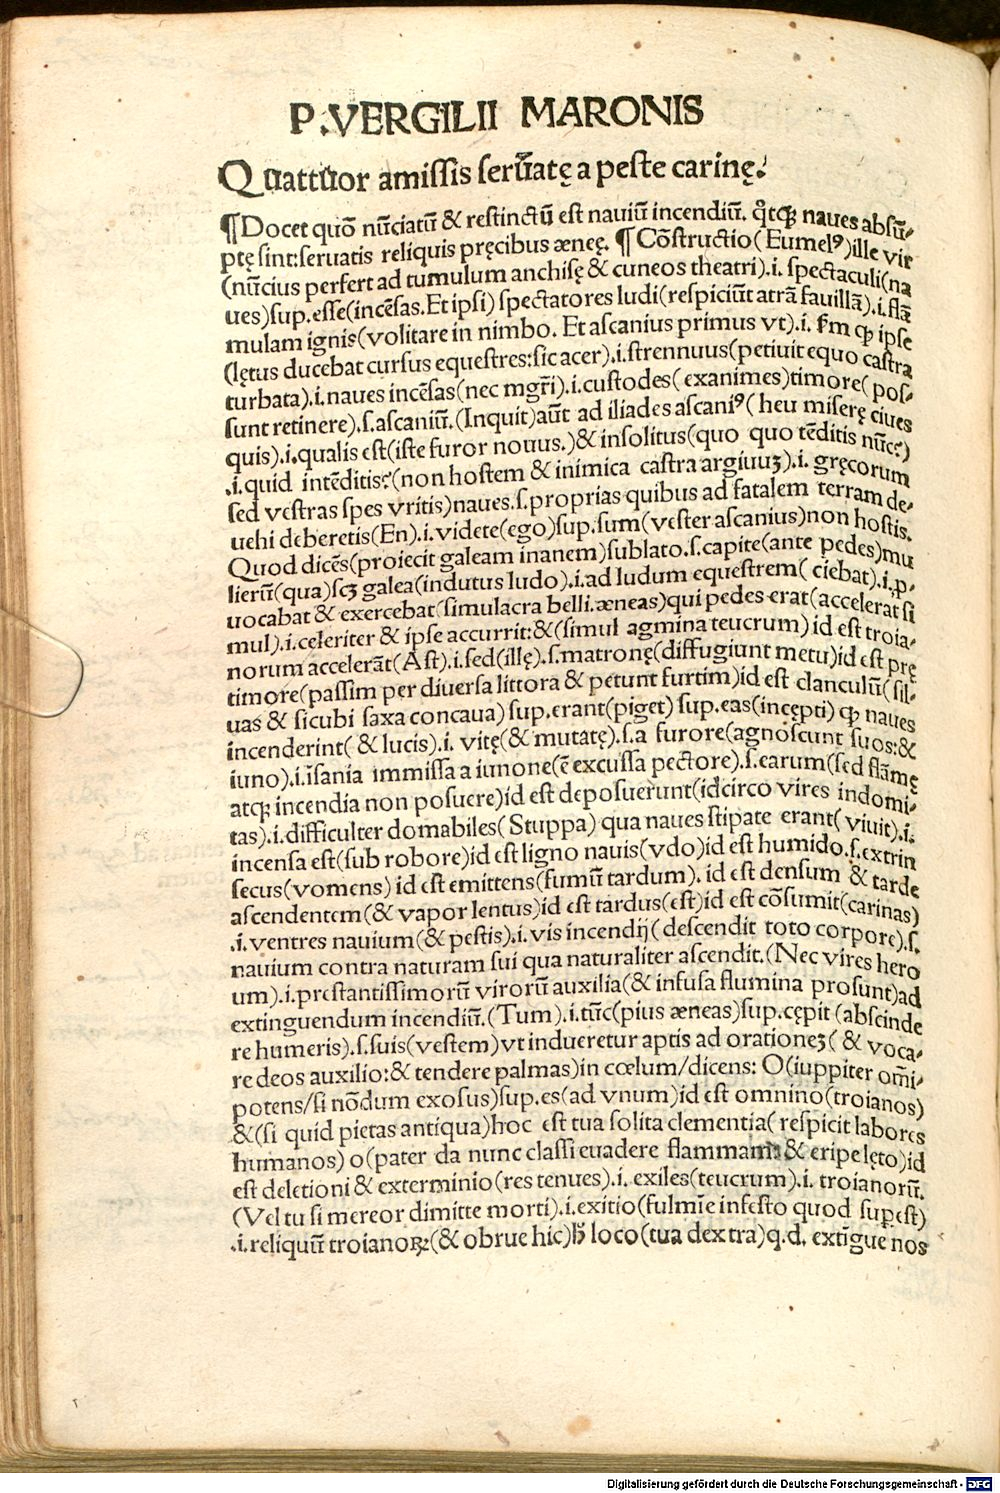 P. VERGILII MARONIS
Quattuor amissis serũatę a peste carinę.
¶Docet quõ nũciatũ & restinctũ est nauiũ incendiũ. q̃tꝗ naues absũ-
ptę sint:seruatis reliquis pręcibus æneę. ¶Cõstructio(Eumelꝰ)ille vir
(nũcius perfert ad tumulum anchisę & cuneos theatri).i. spectaculi(na
ues)sup.esse(incẽsas.Et ipsi) spectatores ludi(respiciũt atrã fauillã).i.flã
mulam ignis(volitare in nimbo. Et ascanius primus vt).i. fm ꝙ ipse
(lętus ducebat cursus equestres:sic acer).i.strennuus(petiuit equo castra
turbata).i.naues incẽsas(nec mgr̃i).i.custodes(exanimes)timore(pos-
sunt retinere).s.ascaniũ.(Inquit)aũt ad iliades ascaniꝰ(heu miserę ciues
quis).i.qualis est(iste furor nouus.)& insolitus(quo quo tẽditis nũc?)
.i.quid intẽditis?(non hostem & inimica castra argiuuꝫ).i. gręcorum
sed vestras spes vritis)naues.s.proprias quibus ad fatalem terram de-
uehi deberetis(En).i.videte(ego)sup.sum(vester ascanius)non hostis.
Quod dicẽs(proiecit galeam inanem)sublato.s.capite(ante pedes)mu
lierũ(qua)scꝫ galea(indutus ludo).i.ad ludum equestrem( ciebat).i.p-
uocabat & exercebat(simulacra belli.æneas)qui pedes erat(accelerat si
mul).i.celeriter & ipse accurrit:&(simul agmina teucrum)id est troia-
norum accelerãt(Ast).i.sed(illę).s.matronę(diffugiunt metu)id est prę
timore(passim per diuersa littora & petunt furtim)id est clanculũ(sil-
uas & sicubi saxa concaua)sup.erant(piget)sup.eas(incępti) ꝙ naues
incenderint( & lucis).i. vitę(& mutatę).s.a furore(agnoscunt suos:&
iuno).i.ĩsania immissa a iunone(ẽ excussa pectore).s.earum(sed flãmę
atꝗ incendia non posuere)id est deposuerunt(idcirco vires indomi-
tas).i.difficulter domabiles(Stuppa) qua naues stipate erant(viuit).i.
incensa est(sub robore)id est ligno nauis(vdo)id est humido.s.extrin
secus(vomens) id est emittens(fumũ tardum). id est densum & tarde
ascendentem(& vapor lentus)id est tardus(est)id est cõsumit(carinas)
.i.ventres nauium(& pestis).i.vis incendij( descendit toto corpore).s.
nauium contra naturam sui qua naturaliter ascendit.(Nec vires hero
um).i.prestantissimorũ virorũ auxilia(& infusa flumina prosunt)ad
extinguendum incendiũ.(Tum).i.tũc(pius æneas)sup.cępit (abscinde
re humeris).s.suis(vestem)vt indueretur aptis ad orationeꝫ( & voca-
re deos auxilio:& tendere palmas)in cœlum/dicens: O(iuppiter om̃i-
potens/si nõdum exosus)sup.es(ad vnum)id est omnino(troianos)
&(si quid pietas antiqua)hoc est tua solita clementia( respicit labores
humanos) o(pater da nunc classi euadere flammam:& eripe lęto)id
est deletioni & exterminio(res tenues).i. exiles(teucrum).i. troianorũ.
(Vel tu si mereor dimitte morti).i.exitio(fulmĩe infesto quod suꝑest)
.i.reliquũ troianoꝝ(& obrue hic)ħ loco(tua dextra)q.d. extĩgue nos
Digitalisierung gefördert durch die Deutsche Forschungsgemeinschaft - DFG